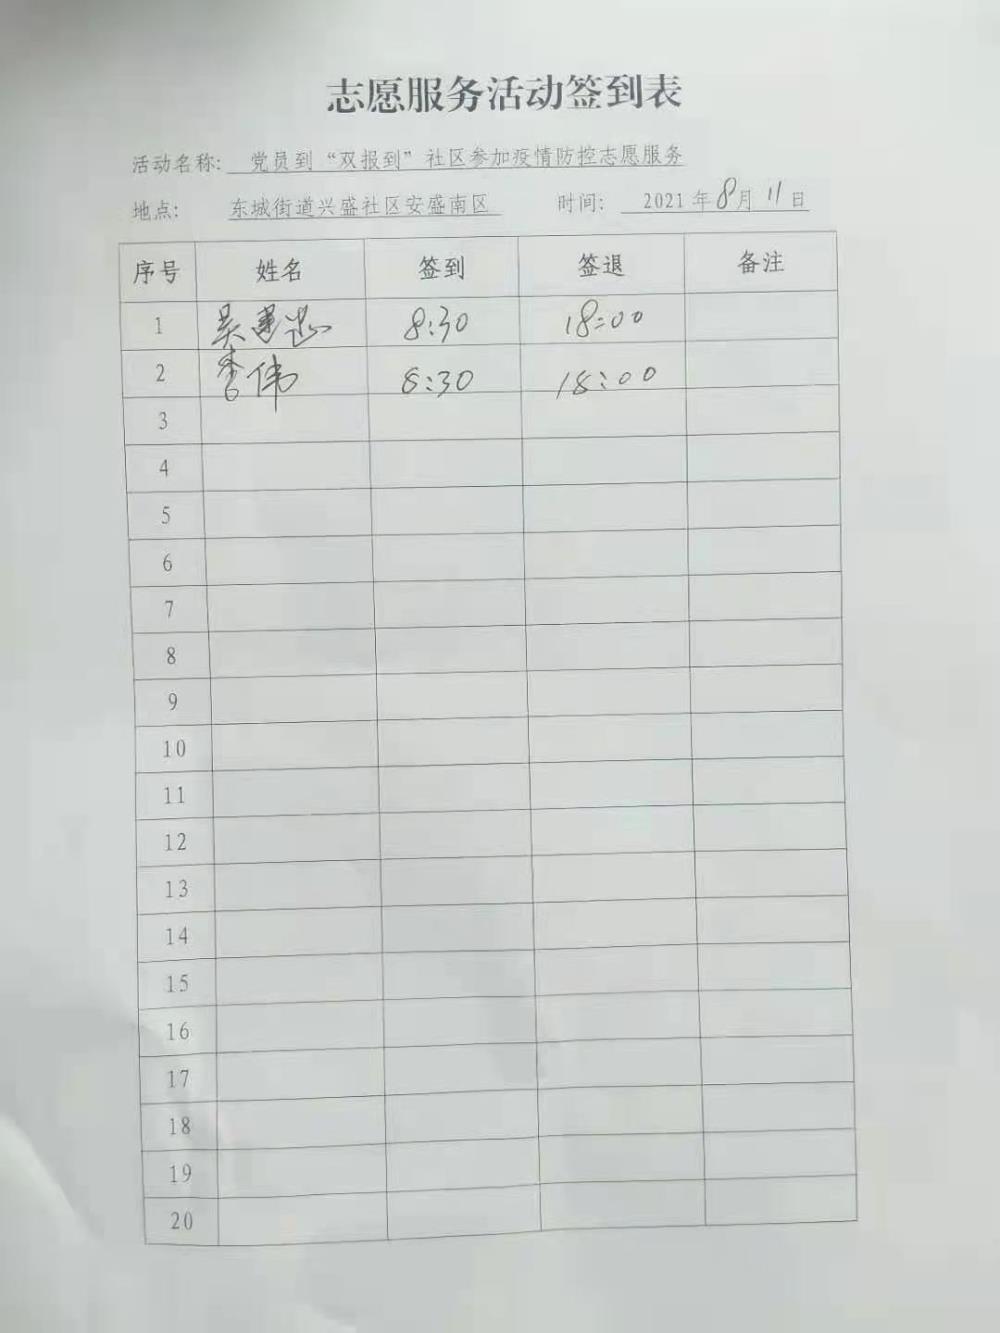 志愿服务活动签到表
活动名称: 党员到“双报到”社区参加疫情防控志愿服务
地点: 东城街道兴盛社区安盛南区 时间: 2021年8月11日
序号 姓名 签到 签退 备注
1 吴 8:30 18:00
2 李伟 8:30 18:00
3
4
5
6
7
8
9
10
11
12
13
14
15
16
17
18
19
20